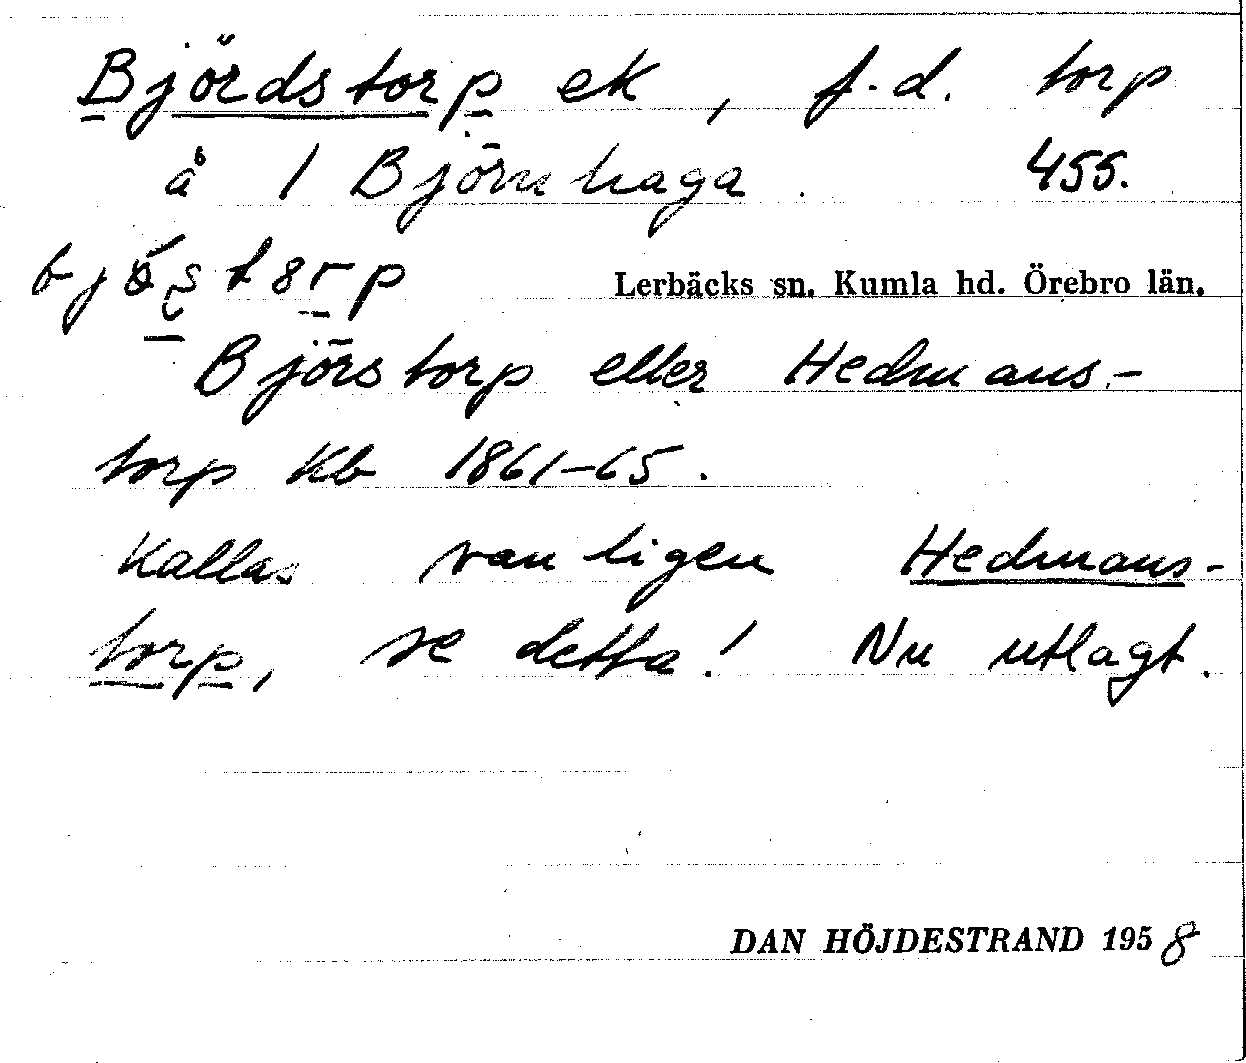 Björdstorp ek, f.d. torp
å 1 Björnhaga. 455.
Lerbäcks sn. Kumla hd. Örebro län.
Björstorp eller Hedmans-
torp Kb 1861-65.
Kallas vanligen Hedmans-
torp, se detta! Nu utlagt.
DAN HÖJDESTRAND 1958